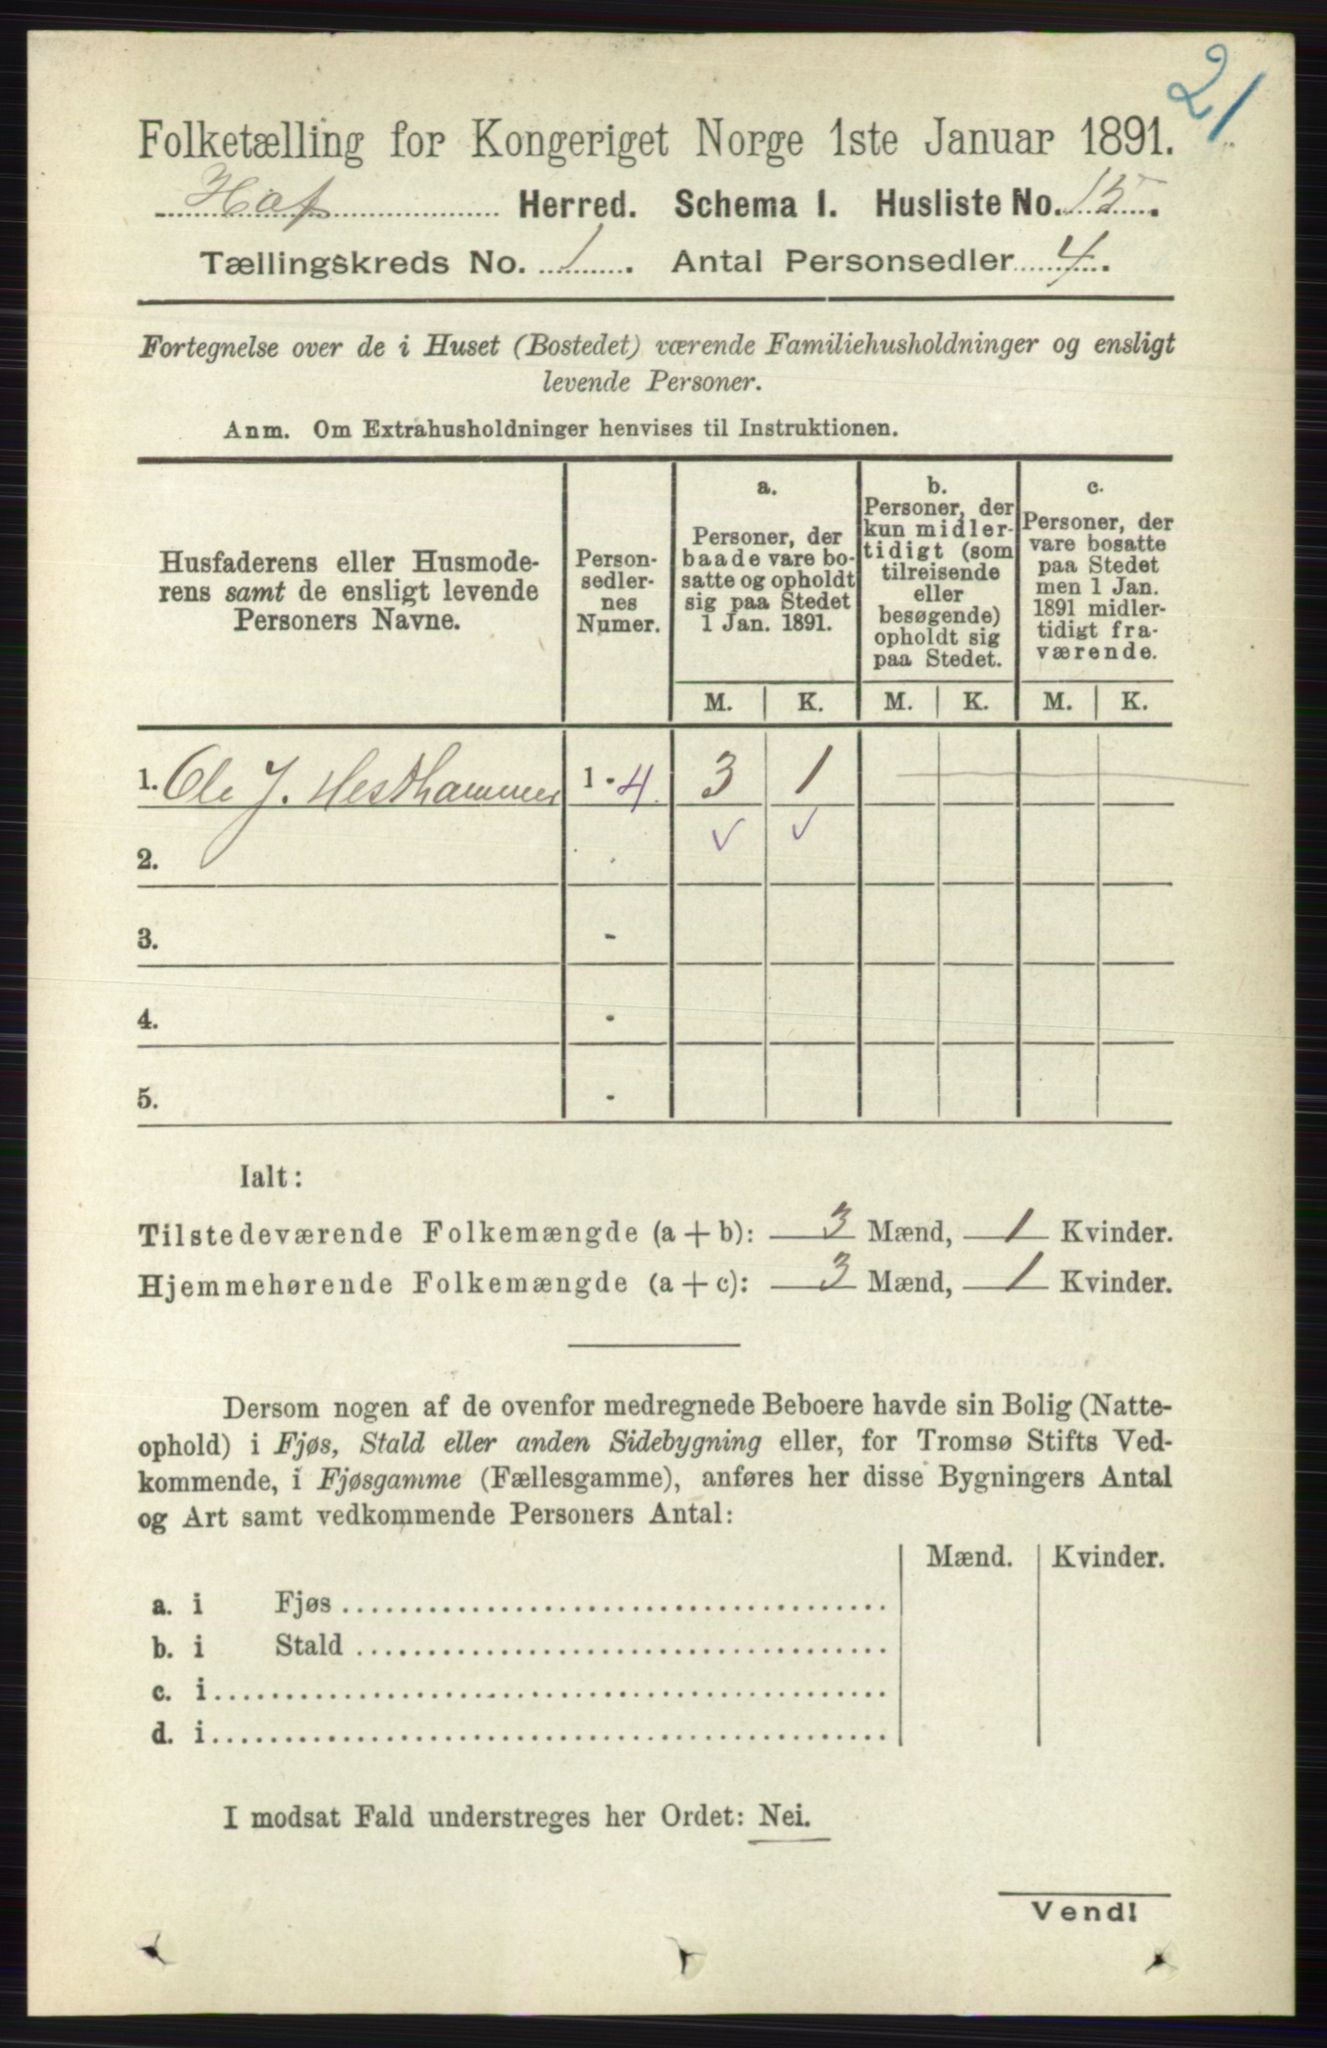 21
Folketælling for Kongeriget Norge 1ste Januar 1891.
Hof Herred. Schema 1. Husliste No. 15.
Tællingskreds No. 1. Antal Personsedler 4.
Fortegnelse over de i Huset (Bostedet) værende Familiehusholdninger og ensligt
levende Personer.
Anm. Om Extrahusholdninger henvises til Instruktionen.
Husfaderens eller Husmode-
rens samt de ensligt levende
Personers Navne.
Person-
sedler-
nes
Numer.
a.
Personer, der
baade vare bo-
satte og opholdt
sig paa Stedet
1 Jan. 1891.
b.
Personer, der
kun midler-
tidigt (som
tilreisende
eller
besøgende)
opholdt sig
paa Stedet.
c.
Personer, der
vare bosatte
paa Stedet
men 1 Jan.
1891 midler-
tidigt fra-
værende.
M. K. M. K. M. K.
1. Ole J. Hesthammer 1 - 4 3 1
2. - ✓ ✓
3. -
4. -
5. -
Ialt:
Tilstedeværende Folkemængde (a + b): 3 Mænd, 1 Kvinder.
Hjemmehørende Folkemængde (a + c): 3 Mænd, 1 Kvinder.
Dersom nogen af de ovenfor medregnede Beboere havde sin Bolig (Natte-
ophold) i Fjøs, Stald eller anden Sidebygning eller, for Tromsø Stifts Ved-
kommende, i Fjøsgamme (Fællesgamme), anføres her disse Bygningers Antal
og Art samt vedkommende Personers Antal:
Mænd. Kvinder.
a. i Fjøs
b. i Stald
c. i
d. i
I modsat Fald understreges her Ordet: Nei.
Vend!